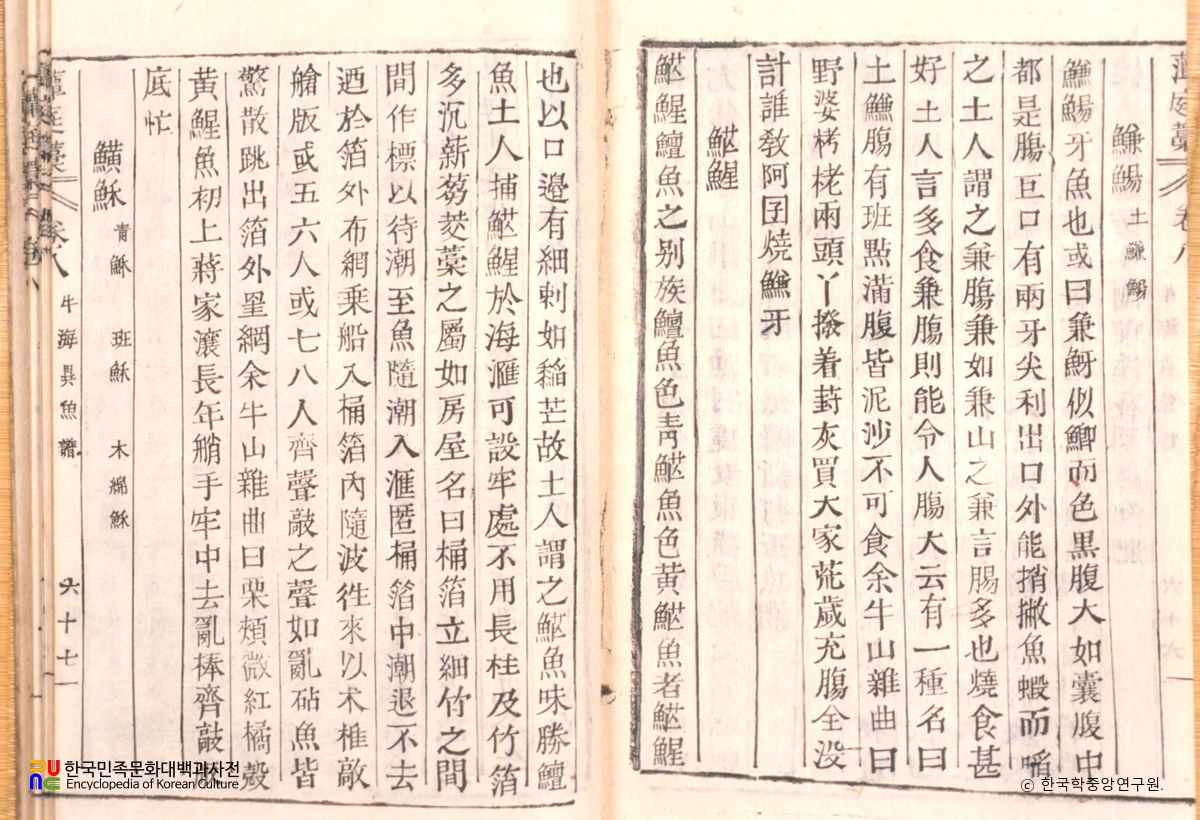 藫庭藁 卷八
鰜鯣 土鰜鯣
鱻鯣牙魚也或曰兼魶似鯽而色黒腹大如囊腹中
都是腸巨口有兩牙尖利出口外能捎撇魚蝦而
之土人謂之兼腸兼如兼山之兼言腸多也燒食甚
好土人言多食兼腸則能令人腸大云有一種名曰
土鱻腸有班點滿腹皆泥沙不可食余牛山雜曲曰
野婆栲栳兩頭丫撥着葑灰買大家荒歲充腸全没
計誰敎阿囝燒鱻牙
䱸鯹
䱸鯹鱣魚之别族鱣魚色靑䱸魚色黄䱸魚者䱸鯹
也以口邉有細刺如稲芒故土人謂之䱸魚味勝鱣
魚土人捕䱸鯹於海滙可設牢處不用長柱及竹箔
多沉薪蒭茭藁之屬如房屋名曰桶箔立細竹之間
間作標以待潮至魚隨潮入滙匿桶箔中潮退不去
迺於箔外布網乗船入桶箔内隨波徃來以木椎敲
艙版或五六人或七八人齊聲敲之聲如亂砧魚皆
驚散跳出箔外罣網余牛山雜曲曰栗頰微紅橘殼
黄鯹魚初上蔣家瀼長年艄手牢中去亂棒齊敲
底忙
鱑鮴 靑鮴 班鮴 木綿鮴
藫庭藁 卷八 牛海異魚譜 六十七
한국민족문화대백과사전
Encyclopedia of Korean Culture
ⓒ 한국학중앙연구원.